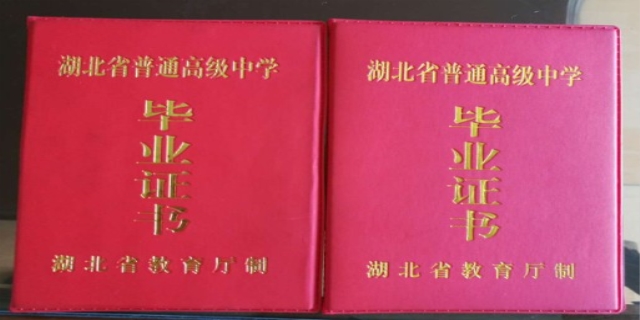 湖北省普通高级中学
毕业证书
湖北省教育厅制
湖北省普通高级中学
毕业证书
湖北省教育厅制